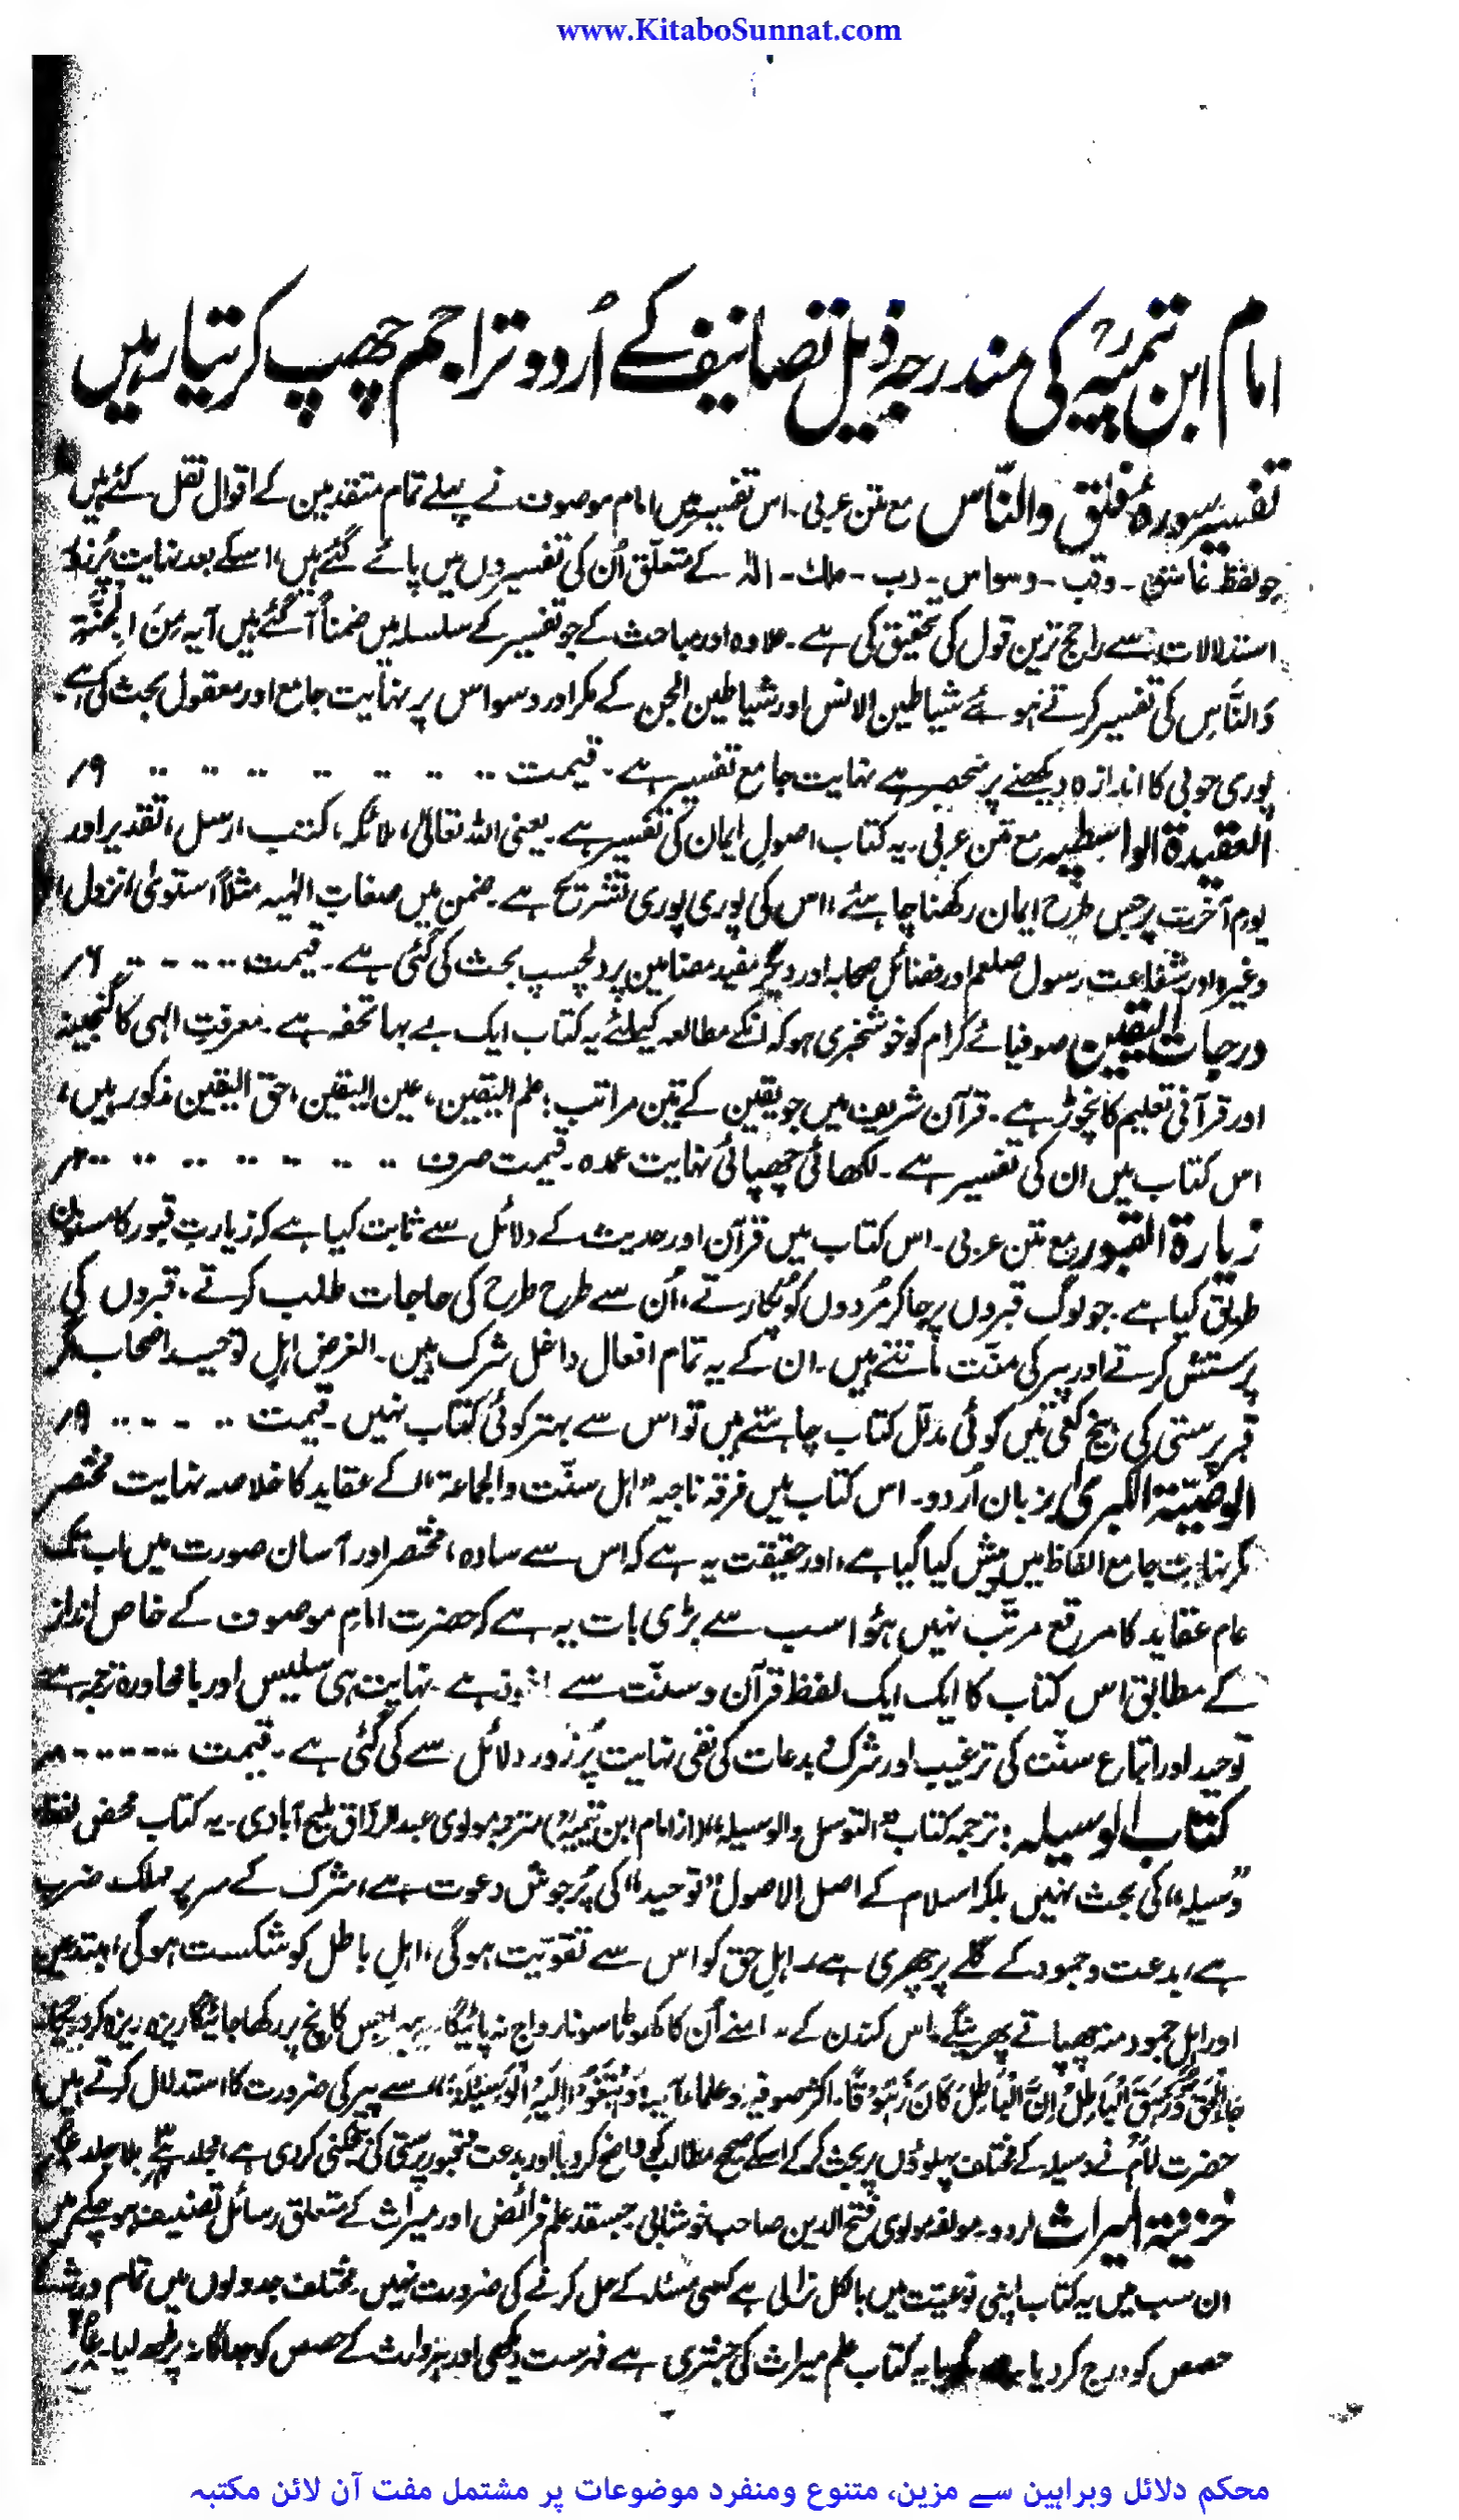 www.KitaboSunnat.com
امام ابن تیمیہؒ کی مندرجہ ذیل تصانیف کے اُردو تراجم چھپ کر تیار ہیں
تفسیر سورہ فلق والنّاس مع متن عربی۔ اس تفسیر میں امام موصوف نے پہلے تمام متقدمین کے اقوال نقل کئے ہیں
جو لفظ غاسق۔ وقب۔ وسواس۔ رب۔ ملک۔ الٰہ کے متعلّق اُن کی تفسیروں میں پائے گئے ہیں، اسکے بعد نہایت پُرزور
استدلالات سے راجح ترین قول کی تحقیق کی ہے۔ علاوہ اور مباحث کے جو تفسیر کے سلسلہ میں ضمناً آگئے ہیں آیہ مِنَ الْجِنَّۃِ
وَالنَّاسِ کی تفسیر کرتے ہوئے شیاطین الانس اور شیاطین الجن کے مکر اور وسواس پر نہایت جامع اور معقول بحث کی ہے۔
پوری خوبی کا اندازہ دیکھنے پر منحصر ہے نہایت جامع تفسیر ہے۔ قیمت ۹؍
العقیدۃ الواسطیہ مع متن عربی۔ یہ کتاب اصولِ ایمان کی تفسیر ہے۔ یعنی اللہ تعالیٰ، ملائکہ، کتب، رسل، تقدیر اور
یوم آخرت پر جس طرح ایمان رکھنا چاہئے، اس کی پوری پوری تشریح ہے۔ ضمن میں صفاتِ الٰہیہ مثلاً استویٰ، نزول
وغیرہ اور شفاعت رسول صلعم اور فضائل صحابہ اور دیگر مفید مضامین پر دلچسپ بحث کی گئی ہے۔ قیمت ۶؍
درجات الیقین صوفیائے کرام کو خوشخبری ہو کہ انکے مطالعہ کیلئے یہ کتاب ایک بے بہا تحفہ ہے۔ معرفتِ الٰہی کا گنجینہ
اور قرآنی تعلیم کا نچوڑ ہے۔ قرآن شریف میں جو یقین کے تین مراتب: علم الیقین، عین الیقین، حق الیقین مذکور ہیں،
اس کتاب میں ان کی تفسیر ہے۔ لکھائی چھپائی نہایت عمدہ۔ قیمت صرف
زیارۃ القبور مع متن عربی۔ اس کتاب میں قرآن اور حدیث کے دلائل سے ثابت کیا ہے کہ زیارتِ قبور کا مسنون
طریق کیا ہے۔ جو لوگ قبروں پر جا کر مُردوں کو پکارتے، اُن سے طرح طرح کی حاجات طلب کرتے، قبروں کی
پرستش کرتے اور پیر کی منّت مانتے ہیں۔ ان کے یہ تمام افعال داخل شرک ہیں۔ الغرض اہلِ توحید اصحاب اگر
قبر پرستی کی بیخ کنی میں کوئی مدلّل کتاب چاہتے ہیں تو اس سے بہتر کوئی کتاب نہیں۔ قیمت ۹؍
الوصیّۃ الکبریٰ بزبان اُردو۔ اس کتاب میں فرقہ ناجیہ "اہل سنّت والجماعۃ" کے عقاید کا خلاصہ نہایت مختصر
مگر نہایت جامع الفاظ میں پیش کیا گیا ہے، اور حقیقت یہ ہے کہ اس سے سادہ، مختصر اور آسان صورت میں اب تک
عام عقاید کا مرقع مرتّب نہیں ہؤا سب سے بڑی بات یہ ہے کہ حضرت امامِ موصوف کے خاص انداز
کے مطابق اس کتاب کا ایک ایک لفظ قرآن و سنّت سے ماخوذ ہے۔ نہایت ہی سلیس اور بامحاورہ ترجمہ ہے
توحید اور اتباع سنّت کی ترغیب اور شرک و بدعات کی نفی نہایت پُرزور دلائل سے کی گئی ہے۔ قیمت
کتاب الوسیلہ: ترجمہ کتاب "التوسل والوسیلہ" (از امام ابن تیمیہؒ) مترجمہ مولوی عبد الرزاق ملیح آبادی۔ یہ کتاب محض لفظ
"وسیلہ" کی بحث نہیں بلکہ اسلام کے اصل الاصول "توحید" کی پُرجوش دعوت ہے، شرک کے سر پر مہلک ضرب
ہے، بدعت وجمود کے گلے پر چھری ہے، اہلِ حق کو اس سے تقویّت ہوگی، اہلِ باطل کو شکست ہوگی، مبتدعین
اور اہلِ جمود منہ چھپاتے پھرینگے، اس کندن کے سامنے اُن کا کھوٹا سونا رواج نہ پائیگا۔ یہ جس کانچ پر رکھا جائیگا ریزہ ریزہ کردیگا
جَاءَ الْحَقُّ وَزَهَقَ الْبَاطِلُ اِنَّ الْبَاطِلَ كَانَ زَهُوْقًا۔ اکثر صوفیہ و علماء آیہ "وَابْتَغُوْا اِلَيْهِ الْوَسِيْلَةَ" سے پیر کی ضرورت کا استدلال کرتے ہیں
حضرت امامؒ نے وسیلہ کے مختلف پہلوؤں پر بحث کرکے اسکے صحیح مطالب کو واضح کردیا اور بدعت قبور پرستی کی بیخکنی کردی ہے، مجلد بلا جلد
خزینۃ المیراث اردو۔ مولفہ مولوی فتح الدین صاحب خوشابی۔ جسقدر علم فرائض اور میراث کے متعلق رسائل تصنیف ہوچکے ہیں
ان سب میں یہ کتاب اپنی نوعیّت میں بالکل نرالی ہے کسی مسئلہ کے حل کرنے کی ضرورت نہیں۔ مختلف جدولوں میں تمام ورثہ
حصص کو درج کردیا ہے گویا یہ کتاب علم میراث کی جنتری ہے فہرست دیکھی اور ہر وارث کے حصص کو جداگانہ پڑھ لیا۔
محکم دلائل وبراہین سے مزین، متنوع ومنفرد موضوعات پر مشتمل مفت آن لائن مکتبہ